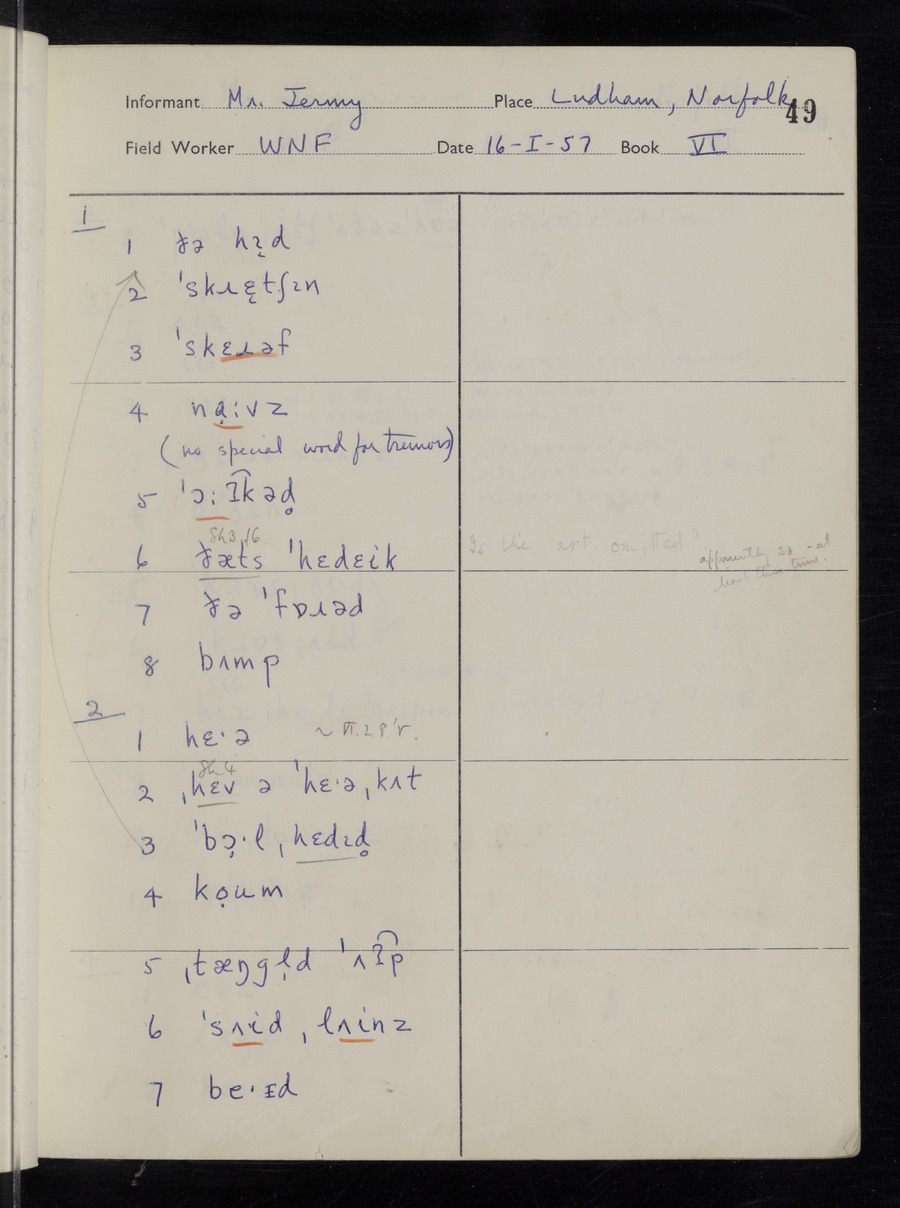 Informant Mr. Jermy Place Ludham, Norfolk 49
Field Worker WNF Date 16-I-57 Book VI
1
1 ðə hɪ̞d
2 ˈskɹɛ̨tʃɪn
3 ˈskɛɹəf
4 nạːvz
(no special word for tremors)
5 ˈɔːʔ͡kəd̥
Sh3,16
6 ðæts ˈhɛdɛik Is the art omitted? apparently so - at
least this time.
7 ðə ˈfɒɹəd
8 bʌmp
2
1 hɛ·ə ~ VI.2.8 'r.
Sh4
2 ˌhɛv ə ˈhɛ·əˌkʌt
3 ˈbɔ̣·lˌhɛdɪd̥
4 kọum
5 ˌtæŋgl̩d ˈʌʔ͡p
6 ˈsʌidˌlʌinz
7 be·ɪd